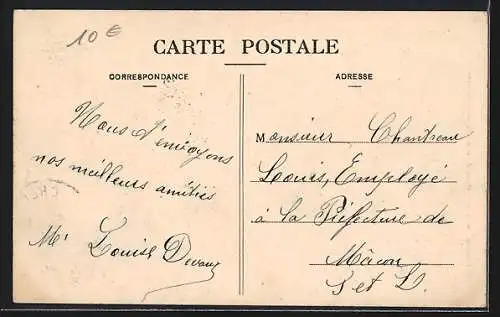 10 €
CARTE POSTALE
CORRESPONDANCE
Nous t'envoyons
nos meilleurs amitiés
Mr Louise
ADRESSE
Monsieur Chantreau
Louis, Employé
à la Préfecture de
Mâcon
S et L.